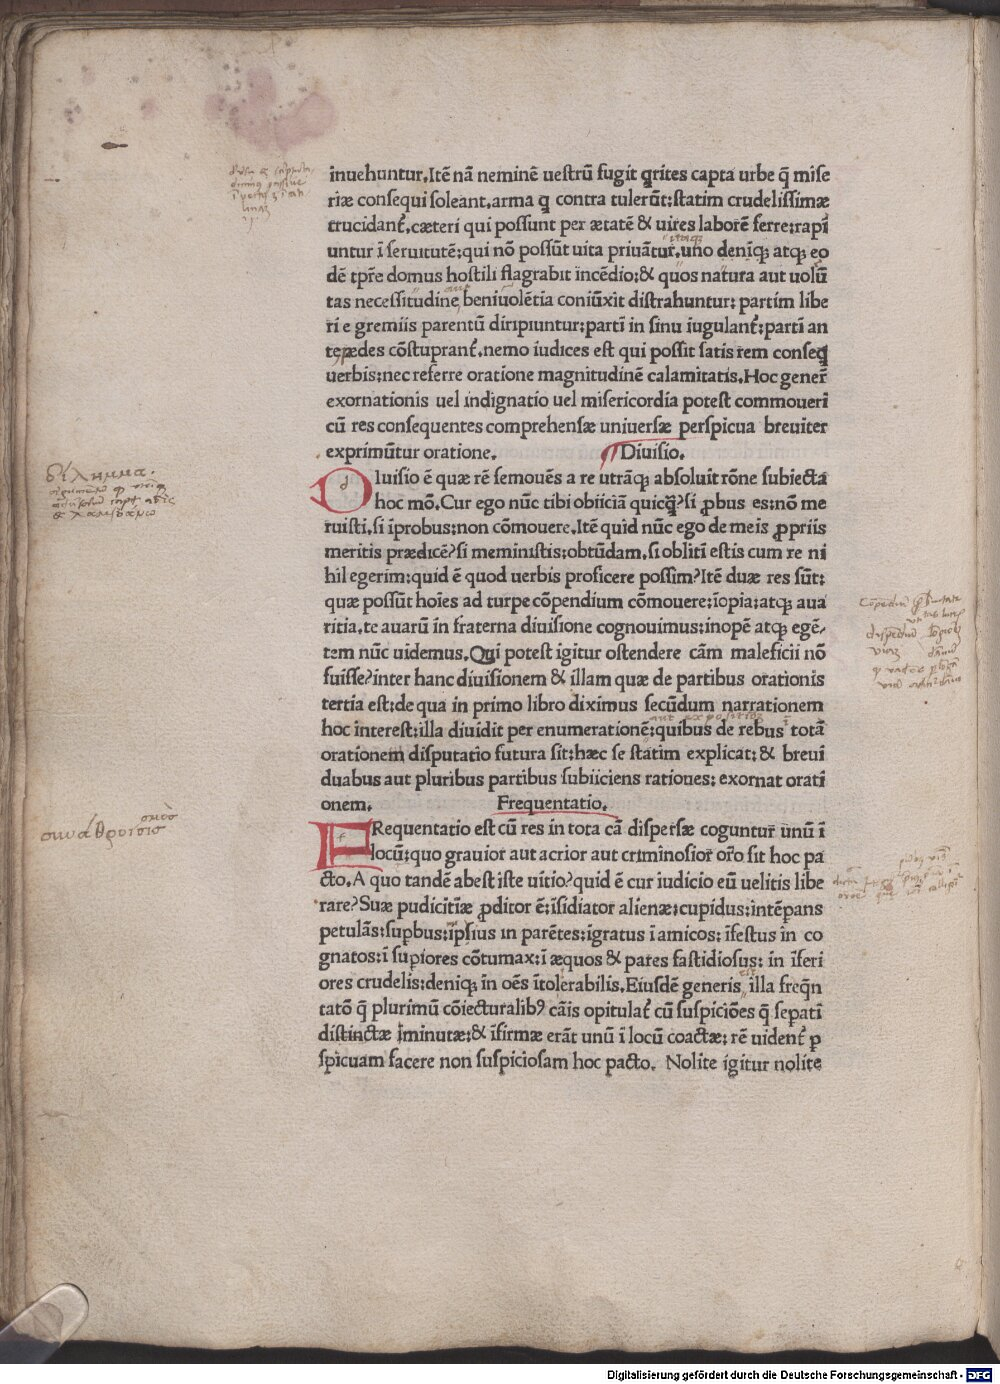 inuehuntur. Itē nā neminē uestrū fugit qrites capta urbe q̄ mise
riæ consequi soleant. arma q̄ contra tulerūt: statim crudelissimæ
trucidanť. cæteri qui possunt per ætatē & uires laborē ferre: rapī
untur ī seruitutē: qui nō possūt uita priuātur. uno deniq; atq; eo
dē tp̄re domus hostili flagrabit īncēdio: & quos natura aut uolū
tas necessitudine beniuolētia coniūxit distrahuntur: partim libe
ri e gremiis parentū diripiuntur: partī in sinu iugulanť: partī an
te pedes cōstupranť. nemo iudices est qui possit satis rem conseq
uerbis: nec referre oratione magnitudinē calamitatis. Hoc gener̄
exornationis uel indignatio uel misericordia potest commoueri
cū res consequentes comprehensæ uniuersæ perspicua breuiter
exprimūtur oratione. Diuisio.
DIuisio ē quæ rē semouēs a re utrāq; absoluit rōne subiecta
hoc mō. Cur ego nūc tibi obiiciā quicq̄? si ꝓbus es: nō me
ruisti. si iprobus: non cōmouere. Itē quid nūc ego de meis ꝓpriis
meritis prædicē? si meministis: obtūdam. si obliti estis cum re ni
hil egerim: quid ē quod uerbis proficere possim? Itē duæ res sūt:
quæ possūt hoīes ad turpe cōpendium cōmouere: īopia: atq; aua
ritia. te auarū in fraterna diuisione cognouimus: inopē atq; egē/
tem nūc uidemus. Qui potest igitur ostendere cām maleficii nō
fuisse? inter hanc diuisionem & illam quæ de partibus orationis
tertia est: de qua in primo libro diximus secūdum narrationem
hoc interest: illa diuidit per enumerationē: quibus de rebus totā
orationem disputatio futura sit: hæc se statim explicat: & breui
duabus aut pluribus partibus subiiciens rationes: exornat orati
onem. Frequentatio.
FRequentatio est cū res in tota cā dispersæ coguntur unū ī
locū: quo grauior aut acrior aut criminosior or̄o sit hoc pa
cto. A quo tandē abest iste uitio? quid ē cur iudicio eū uelitis libe
rare? Suæ pudicitiæ ꝓditor ē: īsidiator alienæ: cupidus: intēp̄ans
petulās: sup̄bus: īp̄sius in parētes: īgratus ī amicos: īfestus īn co
gnatos: ī sup̄iores cōtumax: ī æquos & pares fastidiosus: in īferi
ores crudelis: deniq; in oēs ītolerabilis. Eiusdē generis illa freq̄n
tatō q̄ plurimū cōiecturalibꝰ cāis opitulať cū suspiciōes q̄ sep̄atī
distinctæ īminutæ: & īfirmæ erāt unū ī locū coactæ: rē uidenť p̄
spicuam facere non suspiciosam hoc pacto. Nolite igitur nolite
διλημμα.
Digitalisierung gefördert durch die Deutsche Forschungsgemeinschaft - DFG